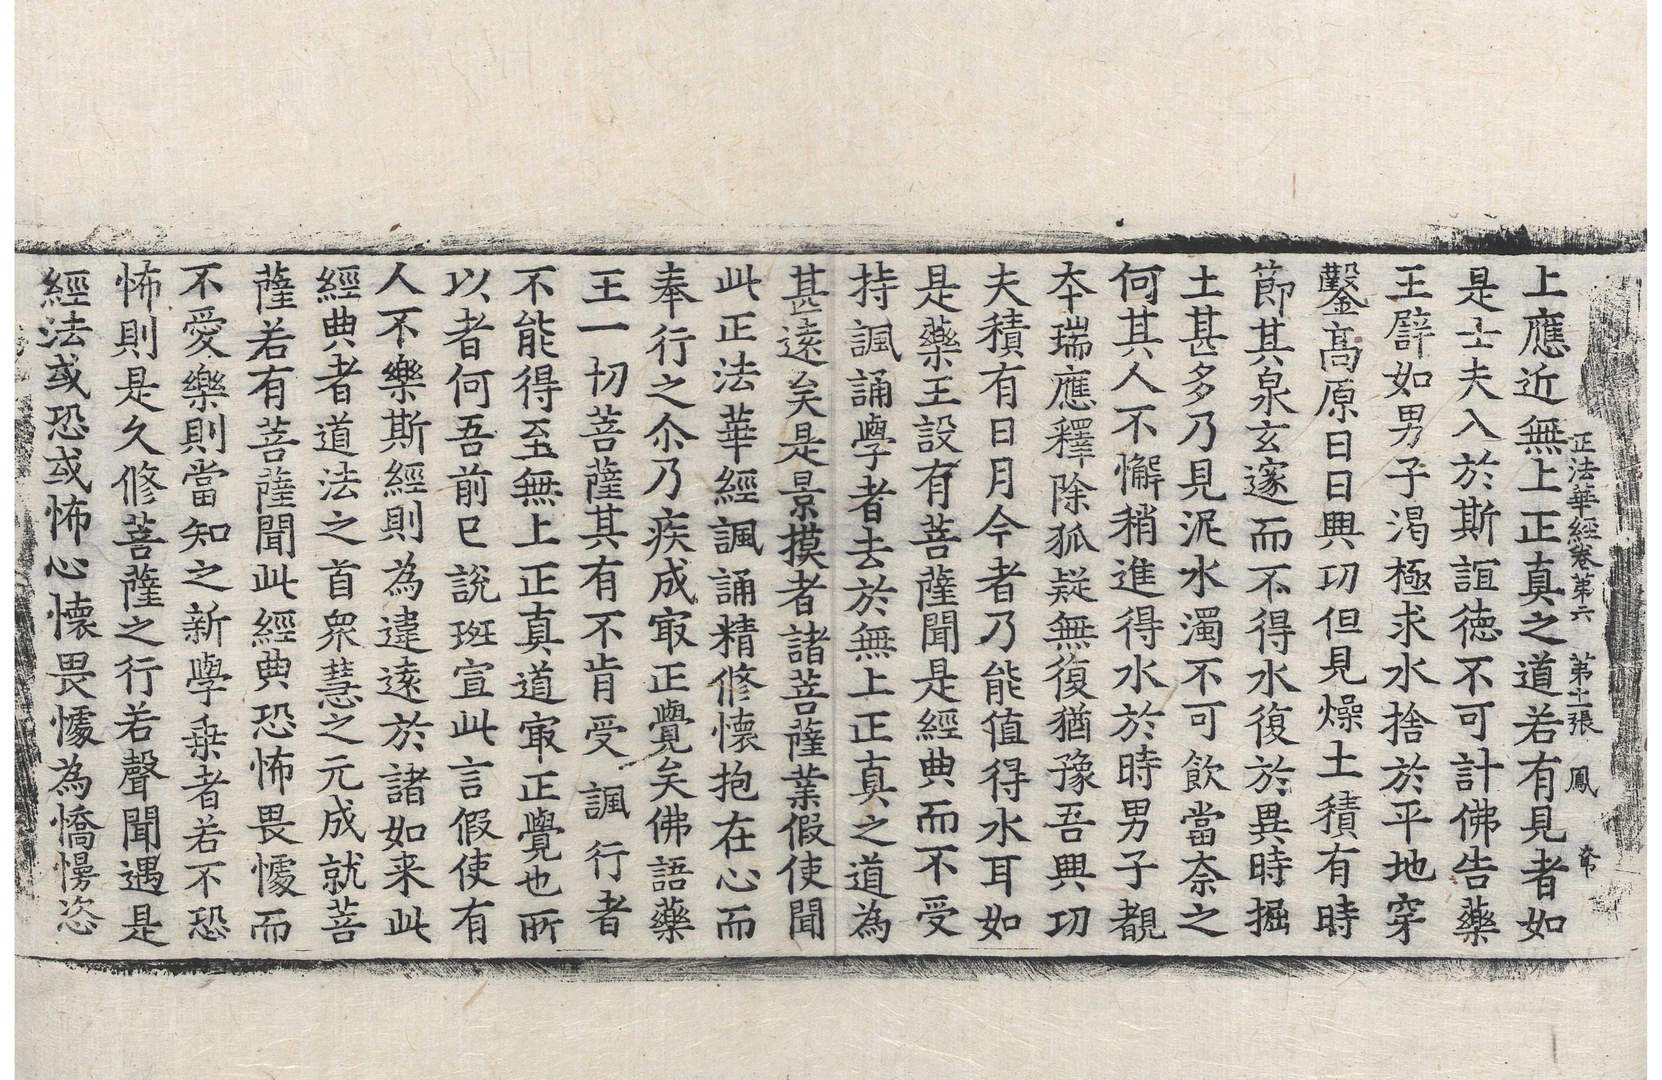 正法華經卷第六 第十二張 鳳
上應近無上正真之道若有見者如
是士夫入於斯誼徳不可計佛告藥
王譬如男子渴極求水捨於平地穿
鑿髙原日日興功但見燥土積有時
節其泉玄邃而不得水復於異時掘
土甚多乃見泥水水濁不可飲當柰之
何其人不懈稍進得水於時男子覩
夲瑞應釋除狐疑無復猶豫吾興功
夫積有日月今者乃能值得水耳如
是藥王設有菩薩聞是經典而不受
持諷誦學者去於無上正真之道為
甚逺矣是景摸者諸菩薩業假使聞
此正法華經諷誦精修懷抱在心而
奉行之尒乃疾成㝡正覺矣佛語藥
王一切菩薩其有不肯受諷行者
不能得至無上正真道㝡正覺也所
以者何吾前已說班宣此言假使有
人不樂斯經則為違逺於諸如来此
經典者道法之首衆慧之元成就菩
薩若有菩薩聞此經典恐怖畏懅而
不愛樂則當知之新學乗者若不恐
怖則是久修菩薩之行若聲聞遇是
經法或恐或怖心懷畏懅為憍慢恣